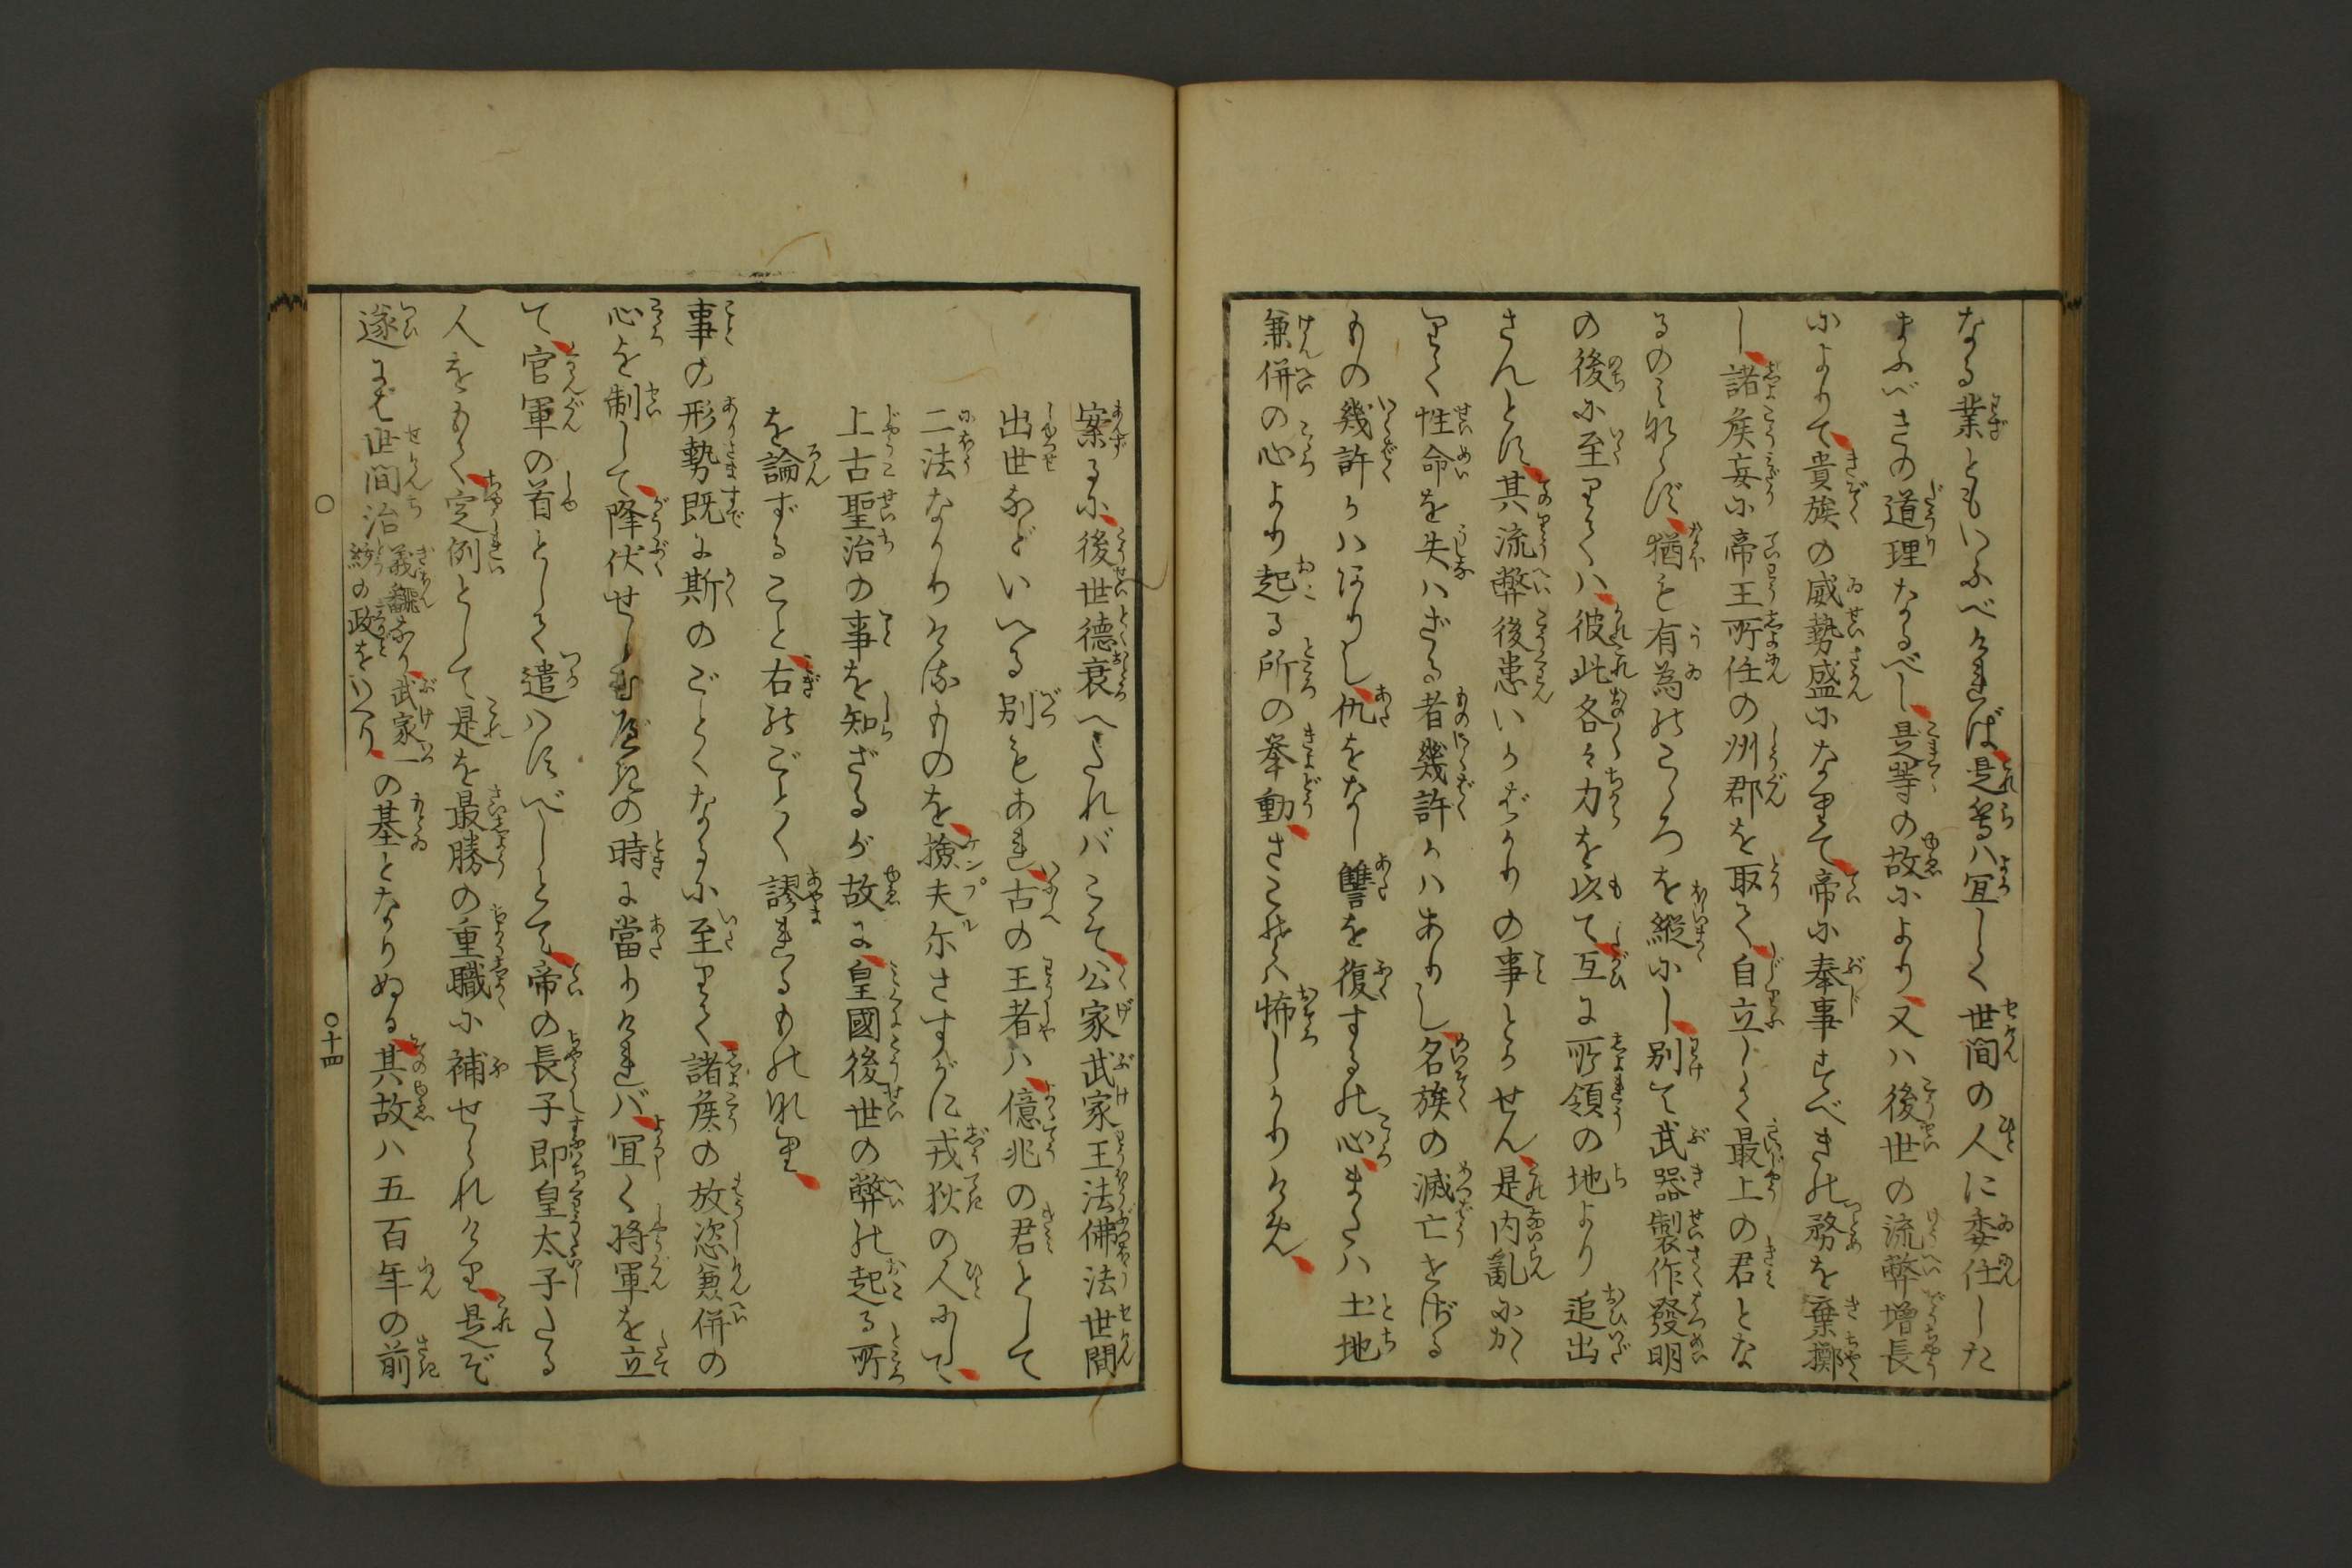 なる業ともいふべければ是等ハ宜しく世間の人に委任した
まふべきの道理なるべし是等の故により又ハ後世の流弊増長
によりて貴族の威勢盛になりて帝に奉事すべきの務を棄擲
し諸矦妄に帝王所任の州郡を取て自立して最上の君とな
るのミならず猶も有為のこゝろを縦にし別て武器製作發明
の後に至りてハ彼此各々力を以て互に所領の地より追出
さんとす其流弊後患いかばかりの事とかせん是内亂にかゝ
りて性命を失ハざる者幾許かハありし名族の滅亡せざる
もの幾許かハありし仇をなし讐を復するの心またハ土地
兼併の心より起る所の挙動さこそハ怖しかりけん
案るに後世德衰へたれバこそ公家武家王法佛法世間
出世などいへる別もあれ古の王者ハ億兆の君として
二法なかりけるものを撿夫尓さすがに戎狄の人にして
上古聖治の事を知ざるが故に皇國後世の弊の起る所
を論ずること右のごとく謬れるものなり
事の形勢既に斯のごとくなるに至りて諸矦の放恣兼併の
心を制して降伏せしむべきの時に當りければ宜く将軍を立
て官軍の首として遣ハすべしとて帝の長子即皇太子たる
人をもて定例として是を最勝の重職に補せられけり是ぞ
遂にも世間治義翻なり武家一統の政をいへりの基となりぬる其故ハ五百年の前
〇 〇十四